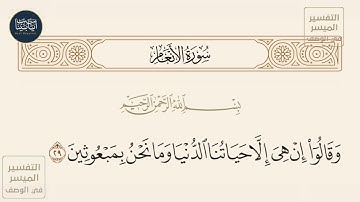 التفسير
الميسر
في الوصف
سُورَةُ الأَنْعَامِ
بِسْمِ اللَّهِ الرَّحْمَٰنِ الرَّحِيمِ
وَقَالُوٓا۟ إِنْ هِىَ إِلَّا حَيَاتُنَا ٱلدُّنْيَا وَمَا نَحْنُ بِمَبْعُوثِينَ ٢٩
التفسير
الميسر
في الوصف